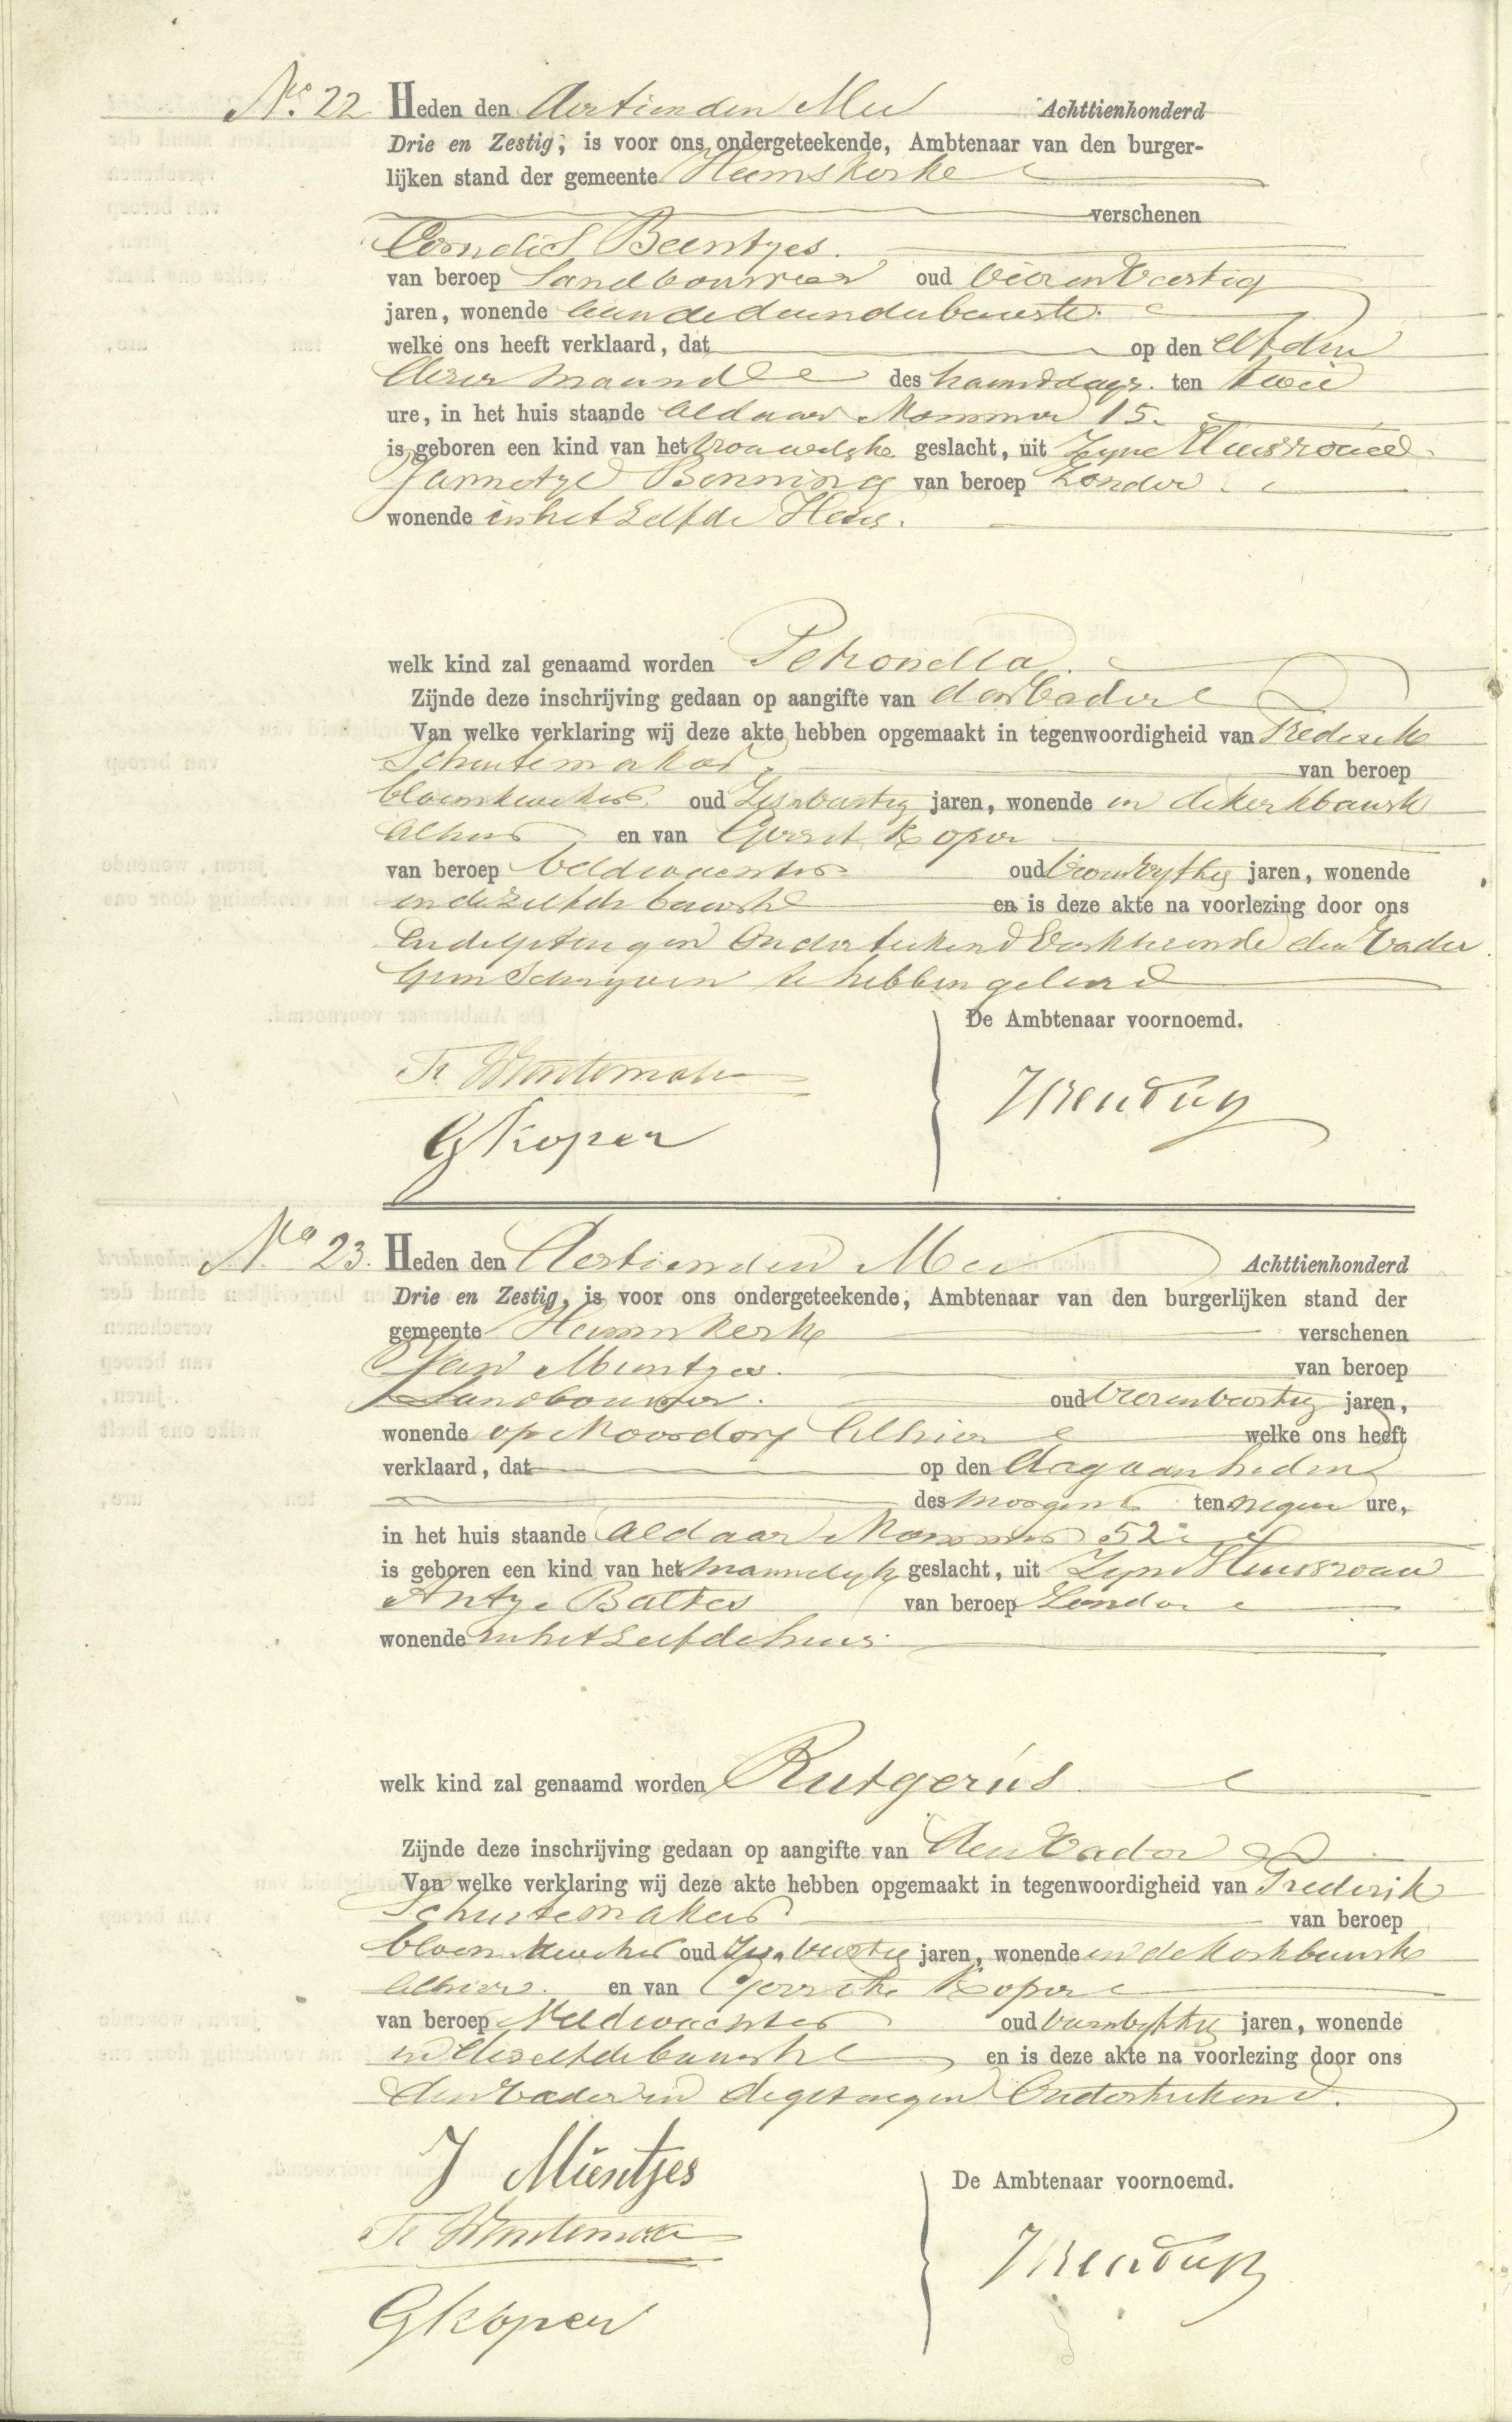 No. 22 Heden den Dertienden Mei Achttienhonderd
Drie en Zestig, is voor ons ondergeteekende, Ambtenaar van den burger-
lijken stand der gemeente Heemskerke
verschenen
Cornelis Beentjes.
van beroep Landbouwer oud Vier en Veertig
jaren, wonende aan de duinderbuurte.
welke ons heeft verklaard, dat op den elfden
dezer maand des namiddags. ten twee
ure, in het huis staande aldaar Nommer 15.
is geboren een kind van het vrouwelyke geslacht, uit Zyne Huisvrouw
Jannetje Benning van beroep Zonder
wonende in het Zelfde Huis.
welk kind zal genaamd worden Petronella.
Zijnde deze inschrijving gedaan op aangifte van den Vader
Van welke verklaring wij deze akte hebben opgemaakt in tegenwoordigheid van Frederik
Schuitemaker van beroep
bloemkweker oud Zes Veertig jaren, wonende in de kerkbuurte
alhier en van Gerrit Koper
van beroep Veldwachter oud jaren, wonende
in dezelfde buurte en is deze akte na voorlezing door ons
en de getuigen Onderteekend Verklarende den Vader
geen Schryven te hebben geleerd
De Ambtenaar voornoemd.
Fr Schuitemaker
G Koper
No 23. Heden den Dertienden Mei Achttienhonderd
Drie en Zestig, is voor ons ondergeteekende, Ambtenaar van den burgerlijken stand der
gemeente Heemskerke verschenen
Jan Muntjes. van beroep
Landbouwer. oud Vierenveertig jaren,
wonende op Noordorp Alhier welke ons heeft
verklaard, dat op den dag van heden
des Morgens ten negen ure,
in het huis staande aldaar Nommer 52
is geboren een kind van het mannelyk geslacht, uit Zyne Huisvrouw
Antje Baltes van beroep Zonder
wonende in het Zelfde huis.
welk kind zal genaamd worden Rutgerus
Zijnde deze inschrijving gedaan op aangifte van den Vader
Van welke verklaring wij deze akte hebben opgemaakt in tegenwoordigheid van Frederik
Schuitemaker van beroep
bloemkweker oud Zes Veertig jaren, wonende in de Kerkbuurte
alhier. en van Gerrit Koper
van beroep Veldwachter oud jaren, wonende
in dezelfde buurte en is deze akte na voorlezing door ons
den Vader en de getuigen Onderteekend.
J Müntjes
De Ambtenaar voornoemd.
Fr Schuitemaker
G Koper